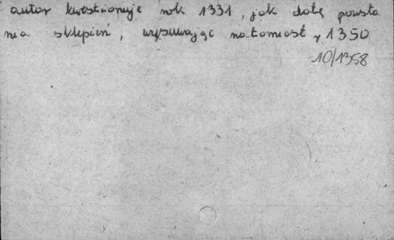 autor kwestionuje rok 1331, jak datę powsta
nia sklepień, wysuwając natomiast r 1350
10/1358